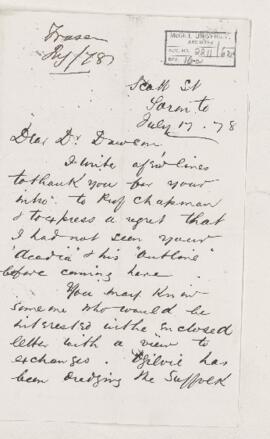 Fraser
Jy/78
McGILL UNIVERSITY
ARCHIVES
ACC. NO. 2211
REF.
Scott St
Toronto
July 17. 78
Dear Dr. Dawson
I write a few lines
to thank you for your
intro. to Prof Chapman
& to express a regret that
I had not seen your
"Acadia" & his "Outline"
before coming here.
You may know
someone who would be
interested in the enclosed
letter with a view to
exchanges. Ogilvie has
been dredging the Suffolk